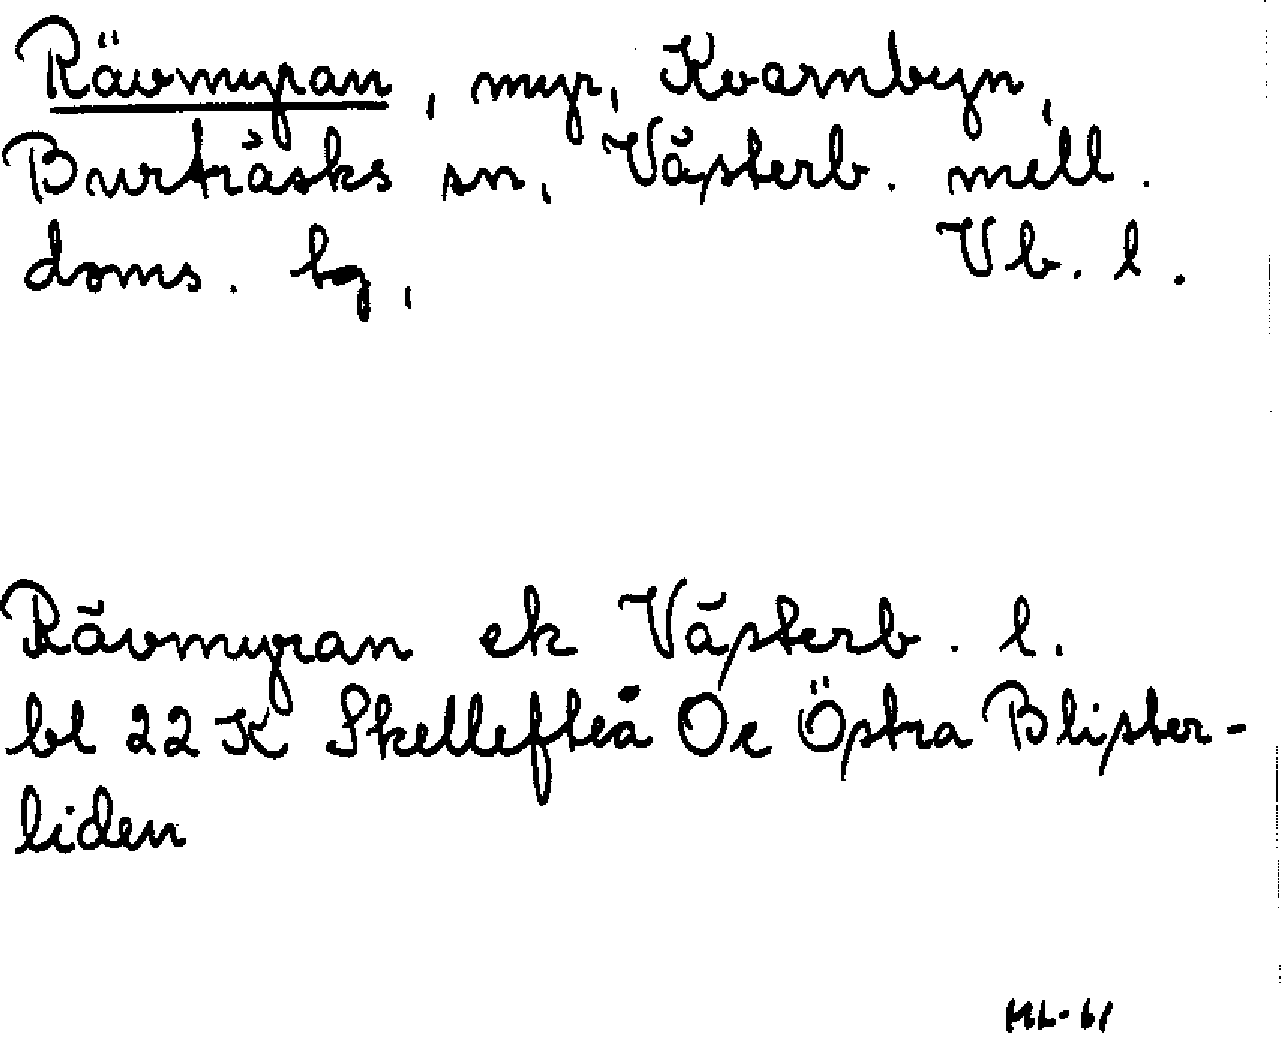 Rävmyran, myr, Kvarnbyn,
Burträsks sn, Västerb. mell.
doms. hg, Vb. l.
Rävmyran ek Västerb. l.
bl 22 K Skellefteå Oc Östra Blister-
liden
ML-61